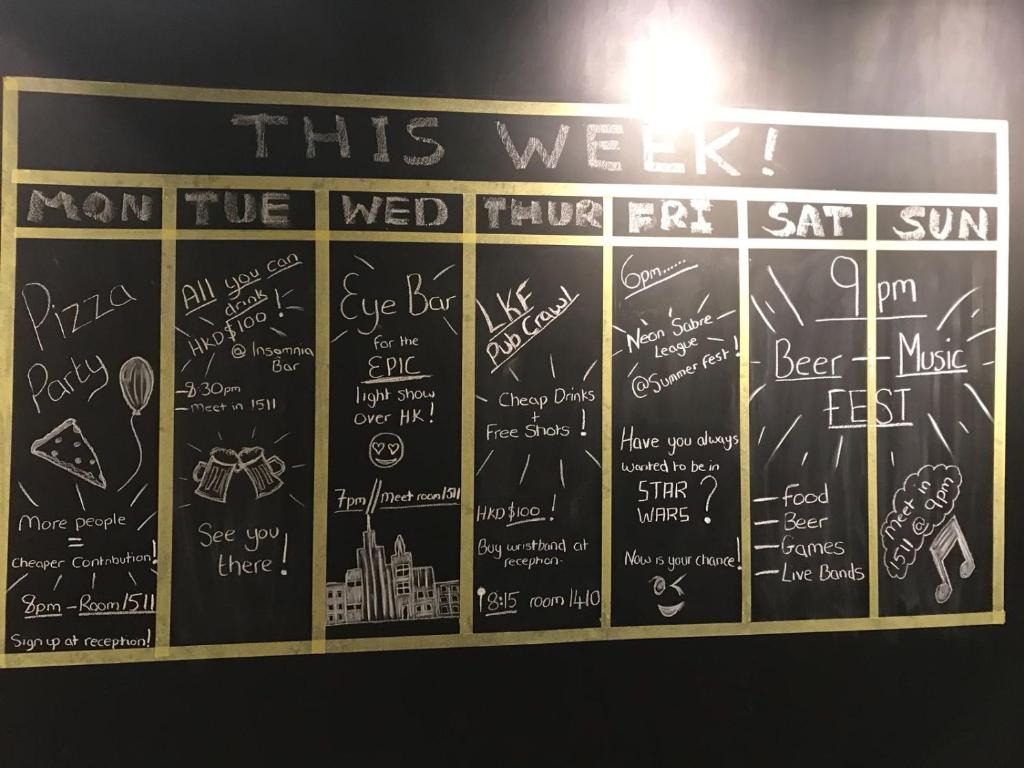 THIS WEEK!
MON
TUE
WED
THUR
FRI
SAT
SUN
Pizza
Party
More people
=
Cheaper Contribution!
8pm - Room 1511
Sign up at reception!
All you can
drink!
HKD$100!
@ Insomnia
Bar
- 8:30pm
- Meet in 1511
See you
there!
Eye Bar
for the
EPIC
light show
over HK!
7pm // Meet room 1511
LKF
Pub Crawl
Cheap Drinks
+
Free Shots!
HKD$100!
Buy wristband at
reception.
8:15 room 1410
6pm......
Neon Sabre
League
@Summer fest!
Have you always
wanted to be in
STAR
WARS?
Now is your chance!
9pm
Beer - Music
FEST
- Food
- Beer
- Games
- Live Bands
meet in
1511 @ 9pm